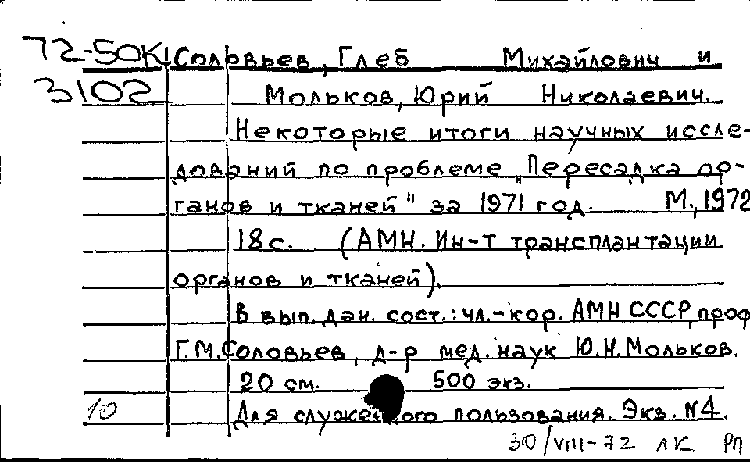 72-50К Соловьев, Глеб Михайлович и
3102 Мольков, Юрий Николаевич.
Некоторые итоги научных иссле-
дований по проблеме „Пересадка ор-
ганов и тканей" за 1971 год. М., 1972
18 с. (АМН. Ин-т трансплантации
органов и тканей).
В вып. дан. сост.: чл.-кор. АМН СССР, проф
Г.М. Соловьев, д-р мед. наук Ю.Н. Мольков.
20 см. 500 экз.
10 Для служебного пользования. Экз. №4.
30/VIII-72 ЛК РП